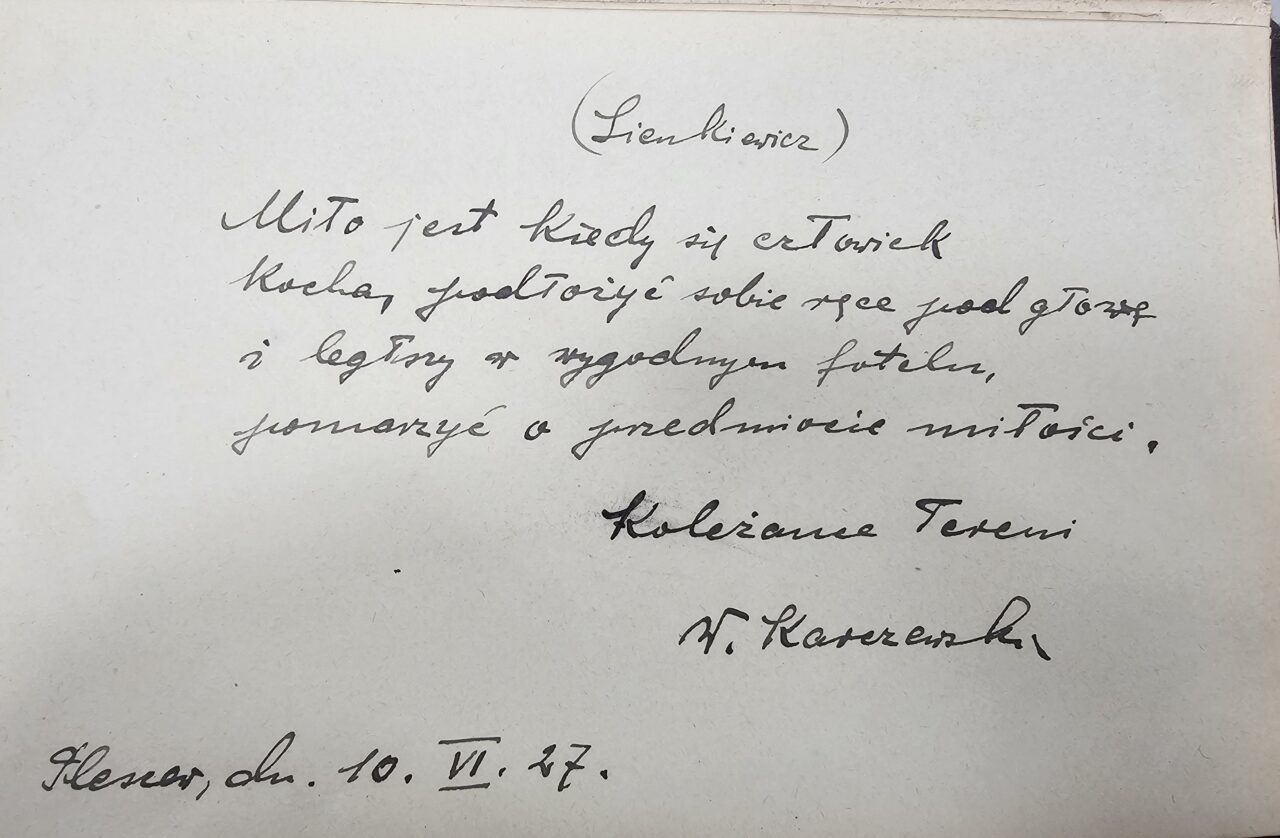 (Sienkiewicz)
Miło jest kiedy się człowiek
kocha, podłożyć sobie ręce pod głowę
iległszy w wygodnym fotelu,
pomarzyć o przedmiocie miłości.
Koleżance Tereni
W. Karczewska
Pleszew, dn. 10. VI. 27.